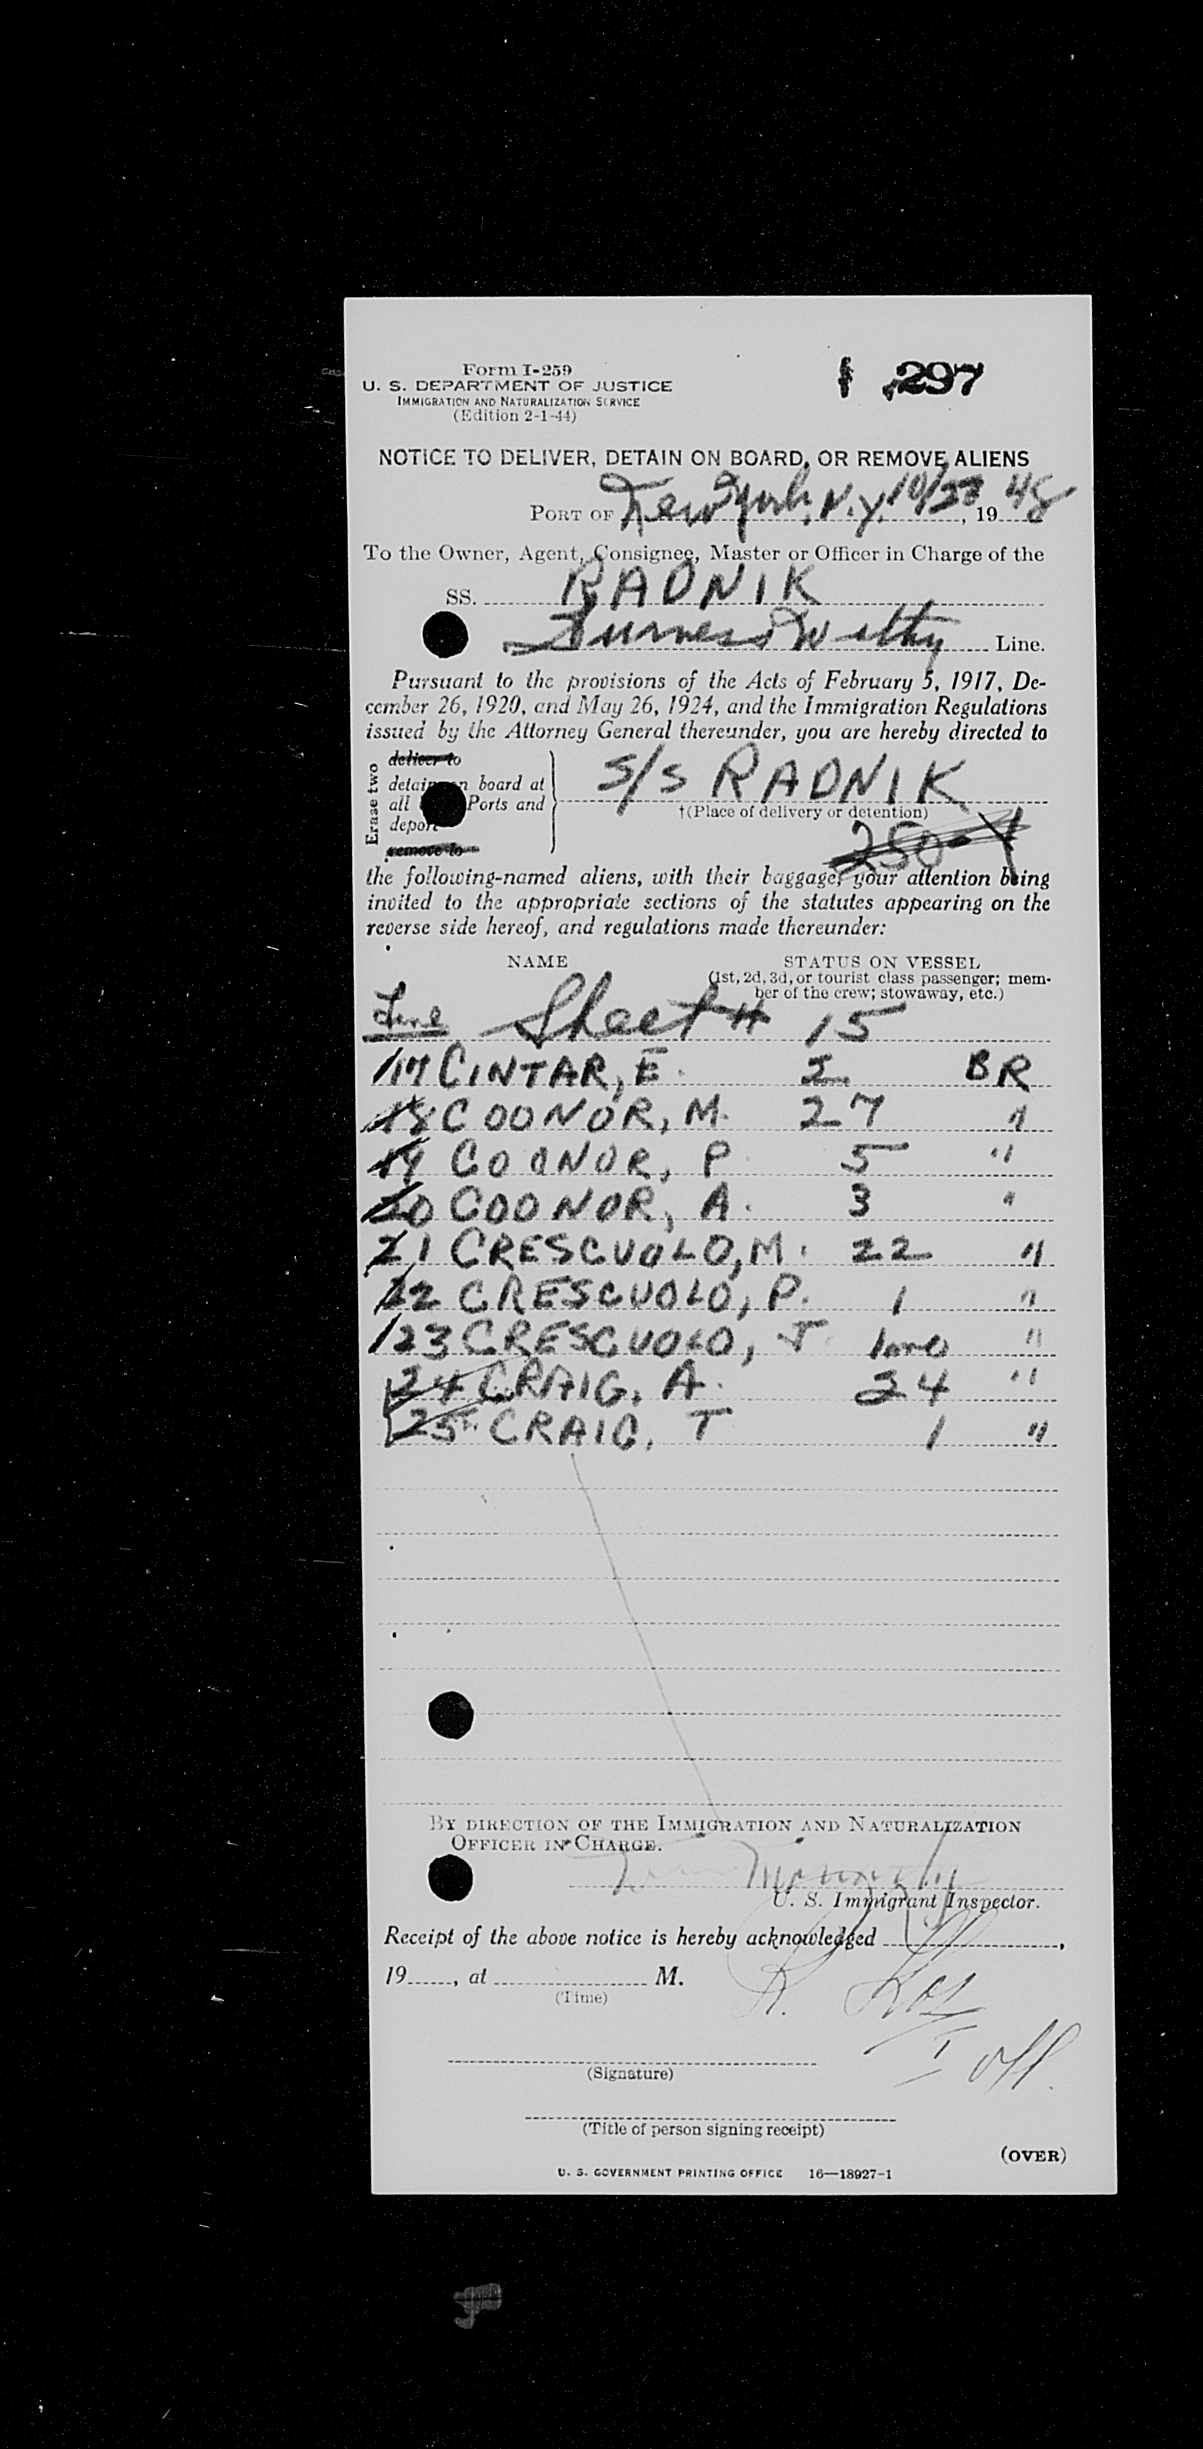 Form I-259
U. S. DEPARTMENT OF JUSTICE
IMMIGRATION AND NATURALIZATION SERVICE
(Edition 2-1-44)
297
NOTICE TO DELIVER, DETAIN ON BOARD, OR REMOVE ALIENS
PORT OF New York, N.Y. 10/23, 1948
To the Owner, Agent, Consignee, Master or Officer in Charge of the
SS. RADNIK
Furness Withy Line.
Pursuant to the provisions of the Acts of February 5, 1917, De-
cember 26, 1920, and May 26, 1924, and the Immigration Regulations
issued by the Attorney General thereunder, you are hereby directed to
Erase two
deliver to
detain on board at
all Ports and
deport
remove to
S/S RADNIK
†(Place of delivery or detention)
250-Y
the following-named aliens, with their baggage, your attention being
invited to the appropriate sections of the statutes appearing on the
reverse side hereof, and regulations made thereunder:
NAME STATUS ON VESSEL
(1st, 2d, 3d, or tourist class passenger; mem-
ber of the crew; stowaway, etc.)
Line Sheet # 15
17 CINTAR, E. BR
18 COONOR, M. 27 "
19 COONOR, P. 5 "
20 COONOR, A. 3 "
21 CRESCUOLO, M. 22 "
22 CRESCUOLO, P. 1 "
23 CRESCUOLO, J. 1mo "
24 CRAIG, A. 24 "
25 CRAIG, T 1 "
BY DIRECTION OF THE IMMIGRATION AND NATURALIZATION
OFFICER IN CHARGE.
U. S. Immigrant Inspector.
Receipt of the above notice is hereby acknowledged ,
19 , at M.
(Time)
R.
I off.
(Signature)
(Title of person signing receipt)
(OVER)
U. S. GOVERNMENT PRINTING OFFICE 16—18927-1